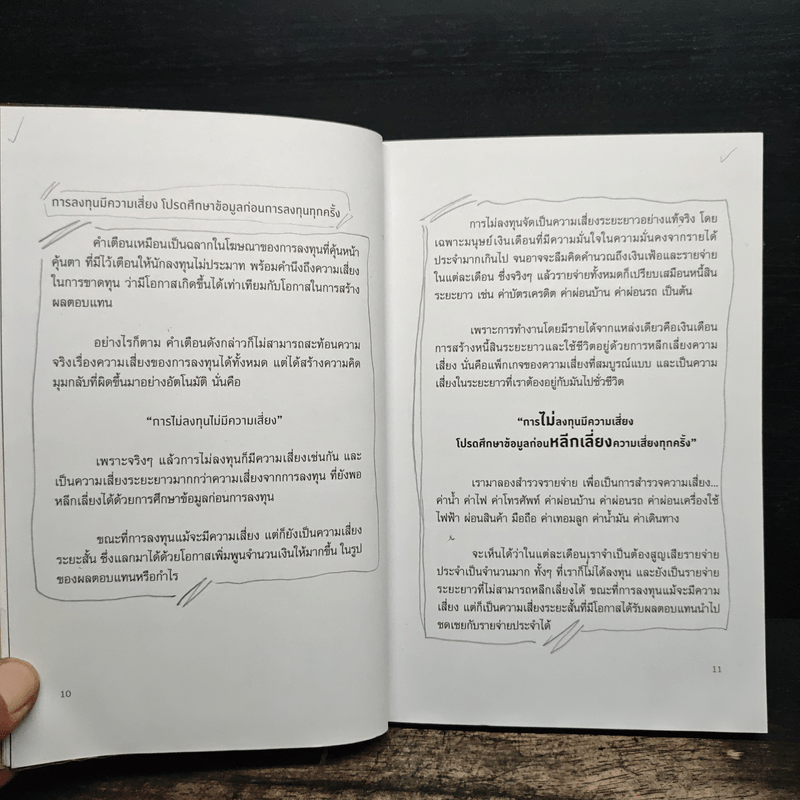 การลงทุนมีความเสี่ยง โปรดศึกษาข้อมูลก่อนการลงทุนทุกครั้ง
คำเตือนเหมือนเป็นฉลากในโฆษณาของการลงทุนที่คุ้นหน้า
คุ้นตา ที่มีไว้เตือนให้นักลงทุนไม่ประมาท พร้อมคำนึงถึงความเสี่ยง
ในการขาดทุน ว่ามีโอกาสเกิดขึ้นได้เท่าเทียมกับโอกาสในการสร้าง
ผลตอบแทน
อย่างไรก็ตาม คำเตือนดังกล่าวก็ไม่สามารถสะท้อนความ
จริงเรื่องความเสี่ยงของการลงทุนได้ทั้งหมด แต่ได้สร้างความคิด
มุมกลับที่ผิดขึ้นมาอย่างอัตโนมัติ นั่นคือ
“การไม่ลงทุนไม่มีความเสี่ยง”
เพราะจริงๆ แล้วการไม่ลงทุนก็มีความเสี่ยงเช่นกัน และ
เป็นความเสี่ยงระยะยาวมากกว่าความเสี่ยงจากการลงทุน ที่ยังพอ
หลีกเลี่ยงได้ด้วยการศึกษาข้อมูลก่อนการลงทุน
ขณะที่การลงทุนแม้จะมีความเสี่ยง แต่ก็ยังเป็นความเสี่ยง
ระยะสั้น ซึ่งแลกมาได้ด้วยโอกาสเพิ่มพูนจำนวนเงินให้มากขึ้น ในรูป
ของผลตอบแทนหรือกำไร
10
การไม่ลงทุนจัดเป็นความเสี่ยงระยะยาวอย่างแท้จริง โดย
เฉพาะมนุษย์เงินเดือนที่มีความมั่นใจในความมั่นคงจากรายได้
ประจำมากเกินไป จนอาจจะลืมคิดคำนวณถึงเงินเฟ้อและรายจ่าย
ในแต่ละเดือน ซึ่งจริงๆ แล้วรายจ่ายทั้งหมดก็เปรียบเสมือนหนี้สิน
ระยะยาว เช่น ค่าบัตรเครดิต ค่าผ่อนบ้าน ค่าผ่อนรถ เป็นต้น
เพราะการทำงานโดยมีรายได้จากแหล่งเดียวคือเงินเดือน
การสร้างหนี้สินระยะยาวและใช้ชีวิตอยู่ด้วยการหลีกเลี่ยงความ
เสี่ยง นั่นคือแพ็กเกจของความเสี่ยงที่สมบูรณ์แบบ และเป็นความ
เสี่ยงในระยะยาวที่เราต้องอยู่กับมันไปชั่วชีวิต
“การไม่ลงทุนมีความเสี่ยง
โปรดศึกษาข้อมูลก่อนหลีกเลี่ยงความเสี่ยงทุกครั้ง”
เรามาลองสำรวจรายจ่าย เพื่อเป็นการสำรวจความเสี่ยง...
ค่าน้ำ ค่าไฟ ค่าโทรศัพท์ ค่าผ่อนบ้าน ค่าผ่อนรถ ค่าผ่อนเครื่องใช้
ไฟฟ้า ผ่อนสินค้า มือถือ ค่าเทอมลูก ค่าน้ำมัน ค่าเดินทาง
จะเห็นได้ว่าในแต่ละเดือนเราจำเป็นต้องสูญเสียรายจ่าย
ประจำเป็นจำนวนมาก ทั้งๆ ที่เราก็ไม่ได้ลงทุน และยังเป็นรายจ่าย
ระยะยาวที่ไม่สามารถหลีกเลี่ยงได้ ขณะที่การลงทุนแม้จะมีความ
เสี่ยง แต่ก็เป็นความเสี่ยงระยะสั้นที่มีโอกาสได้รับผลตอบแทนนำไป
ชดเชยกับรายจ่ายประจำได้
11